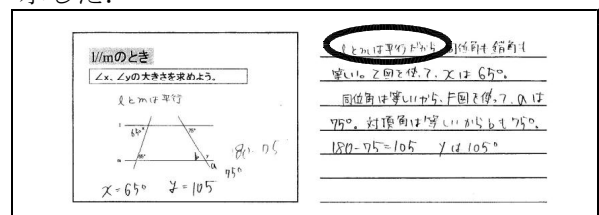 示した.
l//mのとき
∠x、∠yの大きさを求めよう。
lとmは平行
l
65°
75°
m
65°
b
y
a
180-75
75°
x=65° y=105
lとmは平行だから 同位角も錯角も
等しい。Z図を使って、xは65°。
同位角は等しいから、F図を使って、aは
75°。対頂角は等しいからbも75°。
180-75=105 yは105°